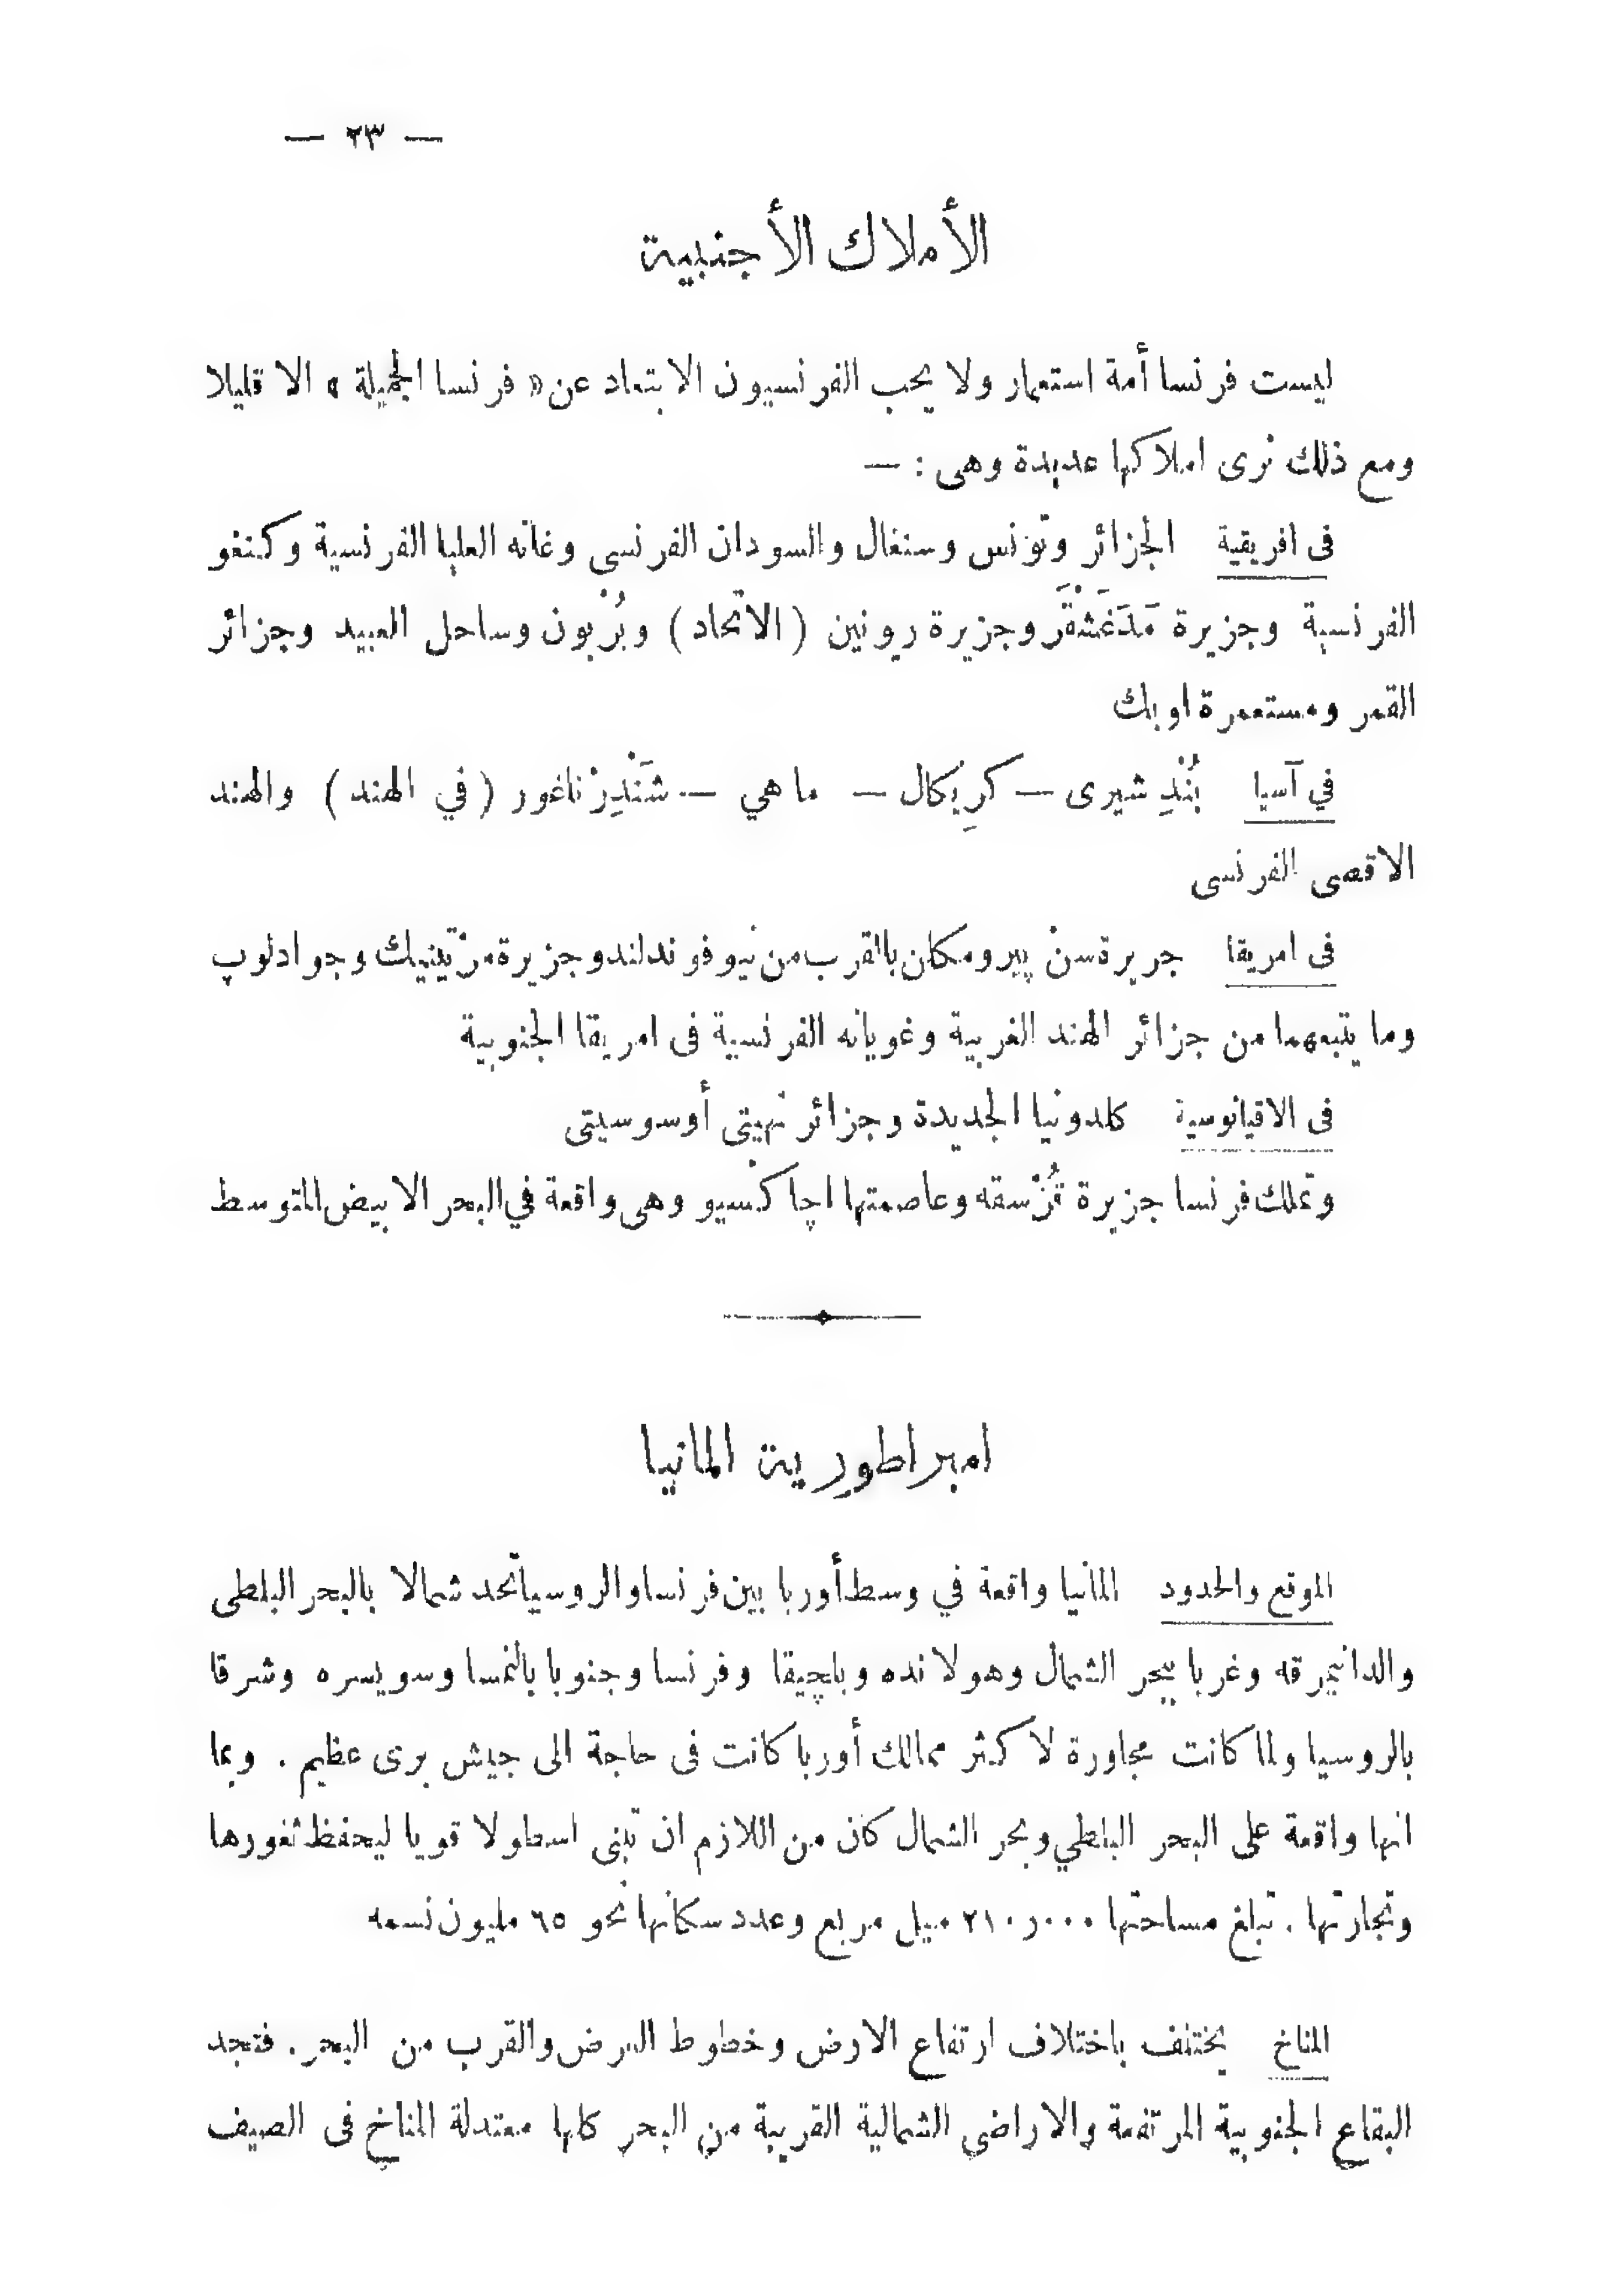 — ٢٣ —
الأملاك الأجنبية
ليست فرنسا أمة استعمار ولا يحب الفرنسيون الابتعاد عن « فرنسا الجميلة » الا قليلا
ومع ذلك نرى املاكها عديدة وهى : —
فى افريقية الجزائر وتونس وسنغال والسودان الفرنسى وغانه العليا الفرنسية وكنغو
الفرنسية وجزيرة مَدَغَشْقَر وجزيرة رونين ( الاتحاد ) وبُرْبون وساحل العبيد وجزائر
القمر ومستعمرة اوبك
في آسيا بُنْدِ شيرى — كرِيكال — ماهي — شَنْدِرْناغور ( في الهند ) والهند
الاقصى الفرنسى
فى امريقا جريرة سنْ پيرومكان بالقرب من نيوفوندلند وجزيرة مرْتينيك وجوادلوپ
وما يتبعهما من جزائر الهند الغربية وغويانه الفرنسية فى امريقا الجنوبية
فى الاقيانوسية كلدونيا الجديدة وجزائر تهيتى أوسوسيتى
وتملك فرنسا جزيرة قُرْسقه وعاصمتها اچاكسيو وهى واقعة في البحر الابيض المتوسط
امبراطورية المانيا
الموقع والحدود المانيا واقعة في وسط أوربا بين فرنسا والروسيا تحد شمالا بالبحر البلطى
والدانيمرقه وغربا ببحر الشمال وهولانده وبلچيقا وفرنسا وجنوبا بالنمسا وسويسره وشرقا
بالروسيا ولما كانت مجاورة لاكثر ممالك أوربا كانت فى حاجة الى جيش برى عظيم . وبما
انها واقعة على البحر البلطي وبحر الشمال كان من اللازم ان تبنى اسطولا قويا ليحفظ ثغورها
وتجارتها . تبلغ مساحتها ٢١٠٫٠٠٠ ميل مربع وعدد سكانها نحو ٦٥ مليون نسمه
المناخ يختلف باختلاف ارتفاع الارض وخطوط العرض والقرب من البحر . فتجد
البقاع الجنوبية المرتفعة والاراضى الشمالية القريبة من البحر كلها معتدلة المناخ فى الصيف